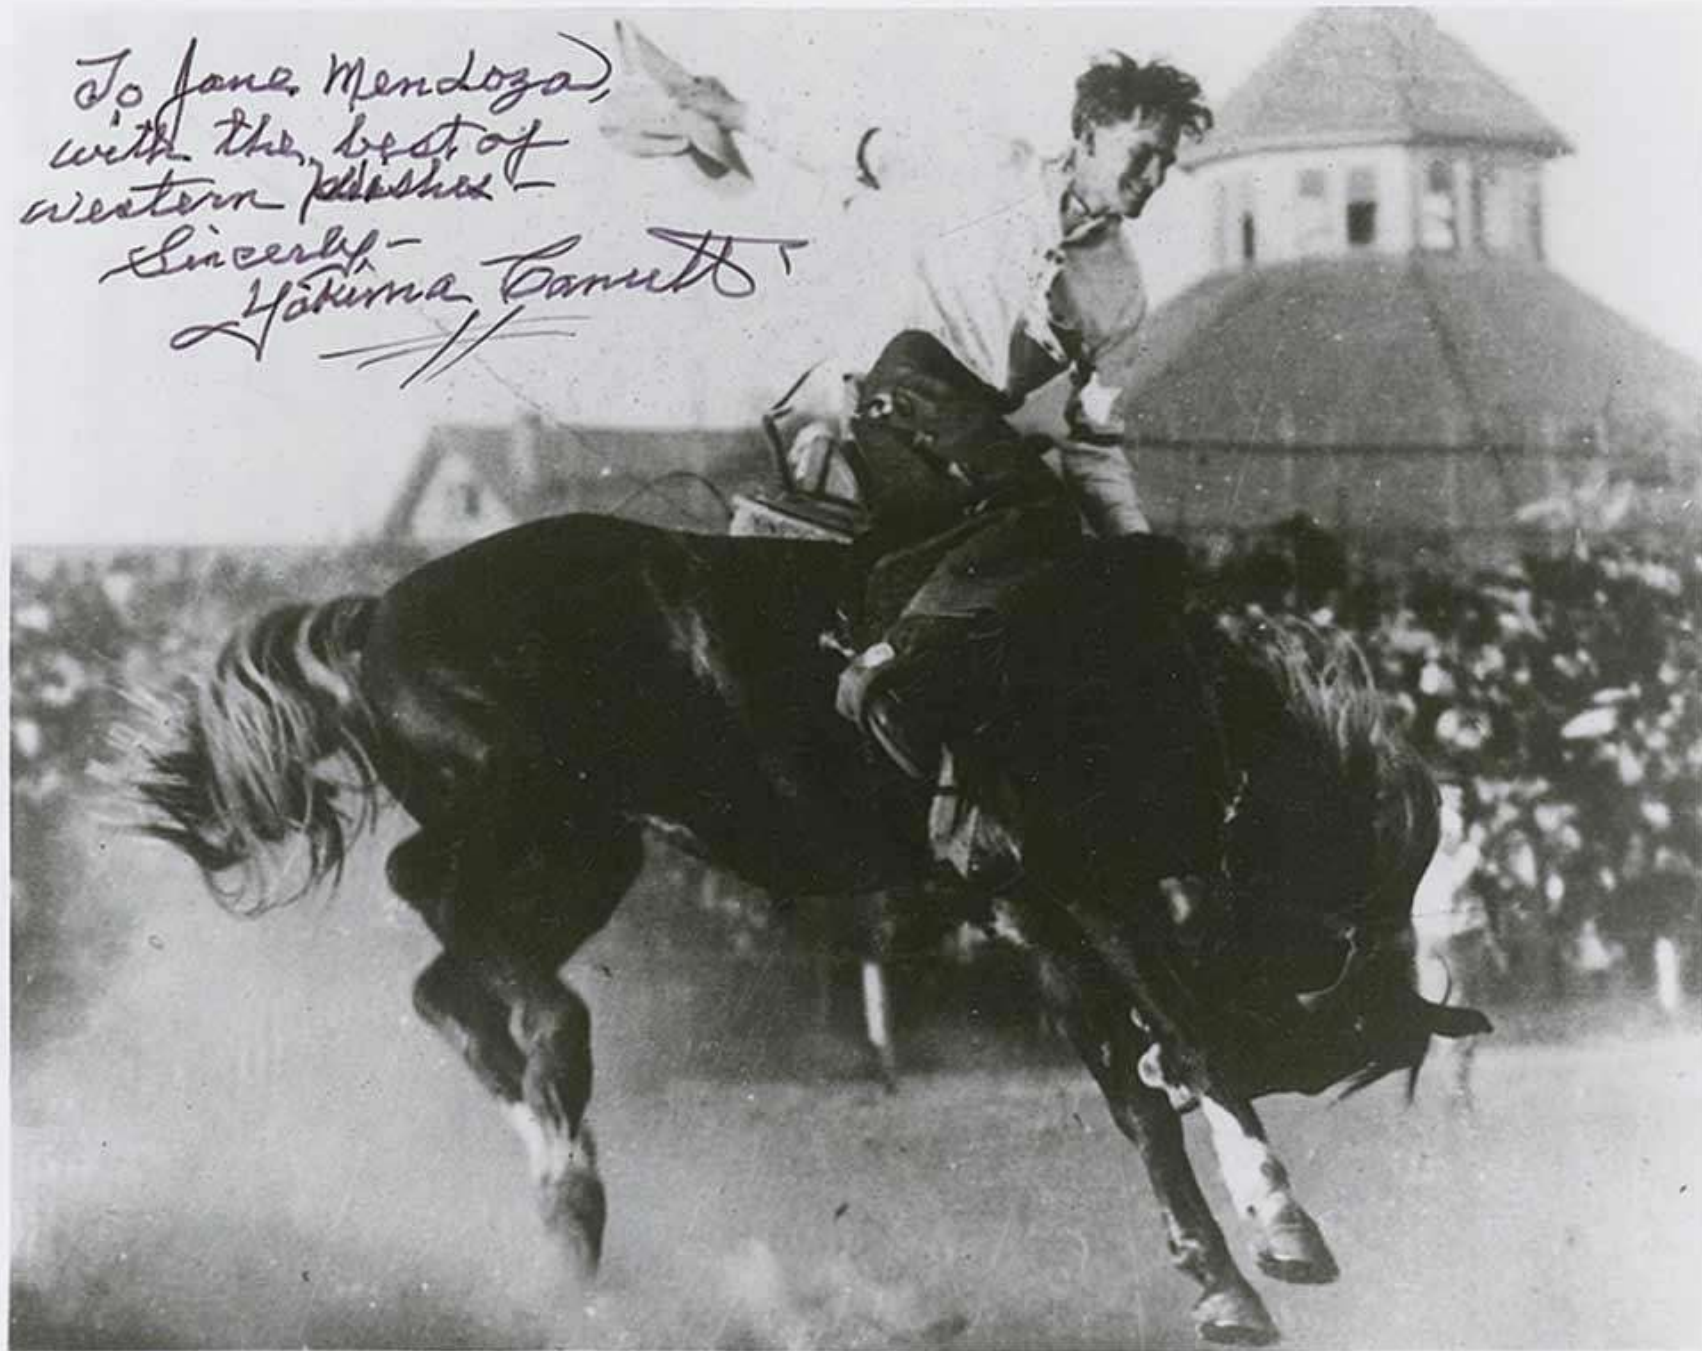 To Jane Mendoza,
with the best of
western wishes –
Sincerly –
Yakima Canutt